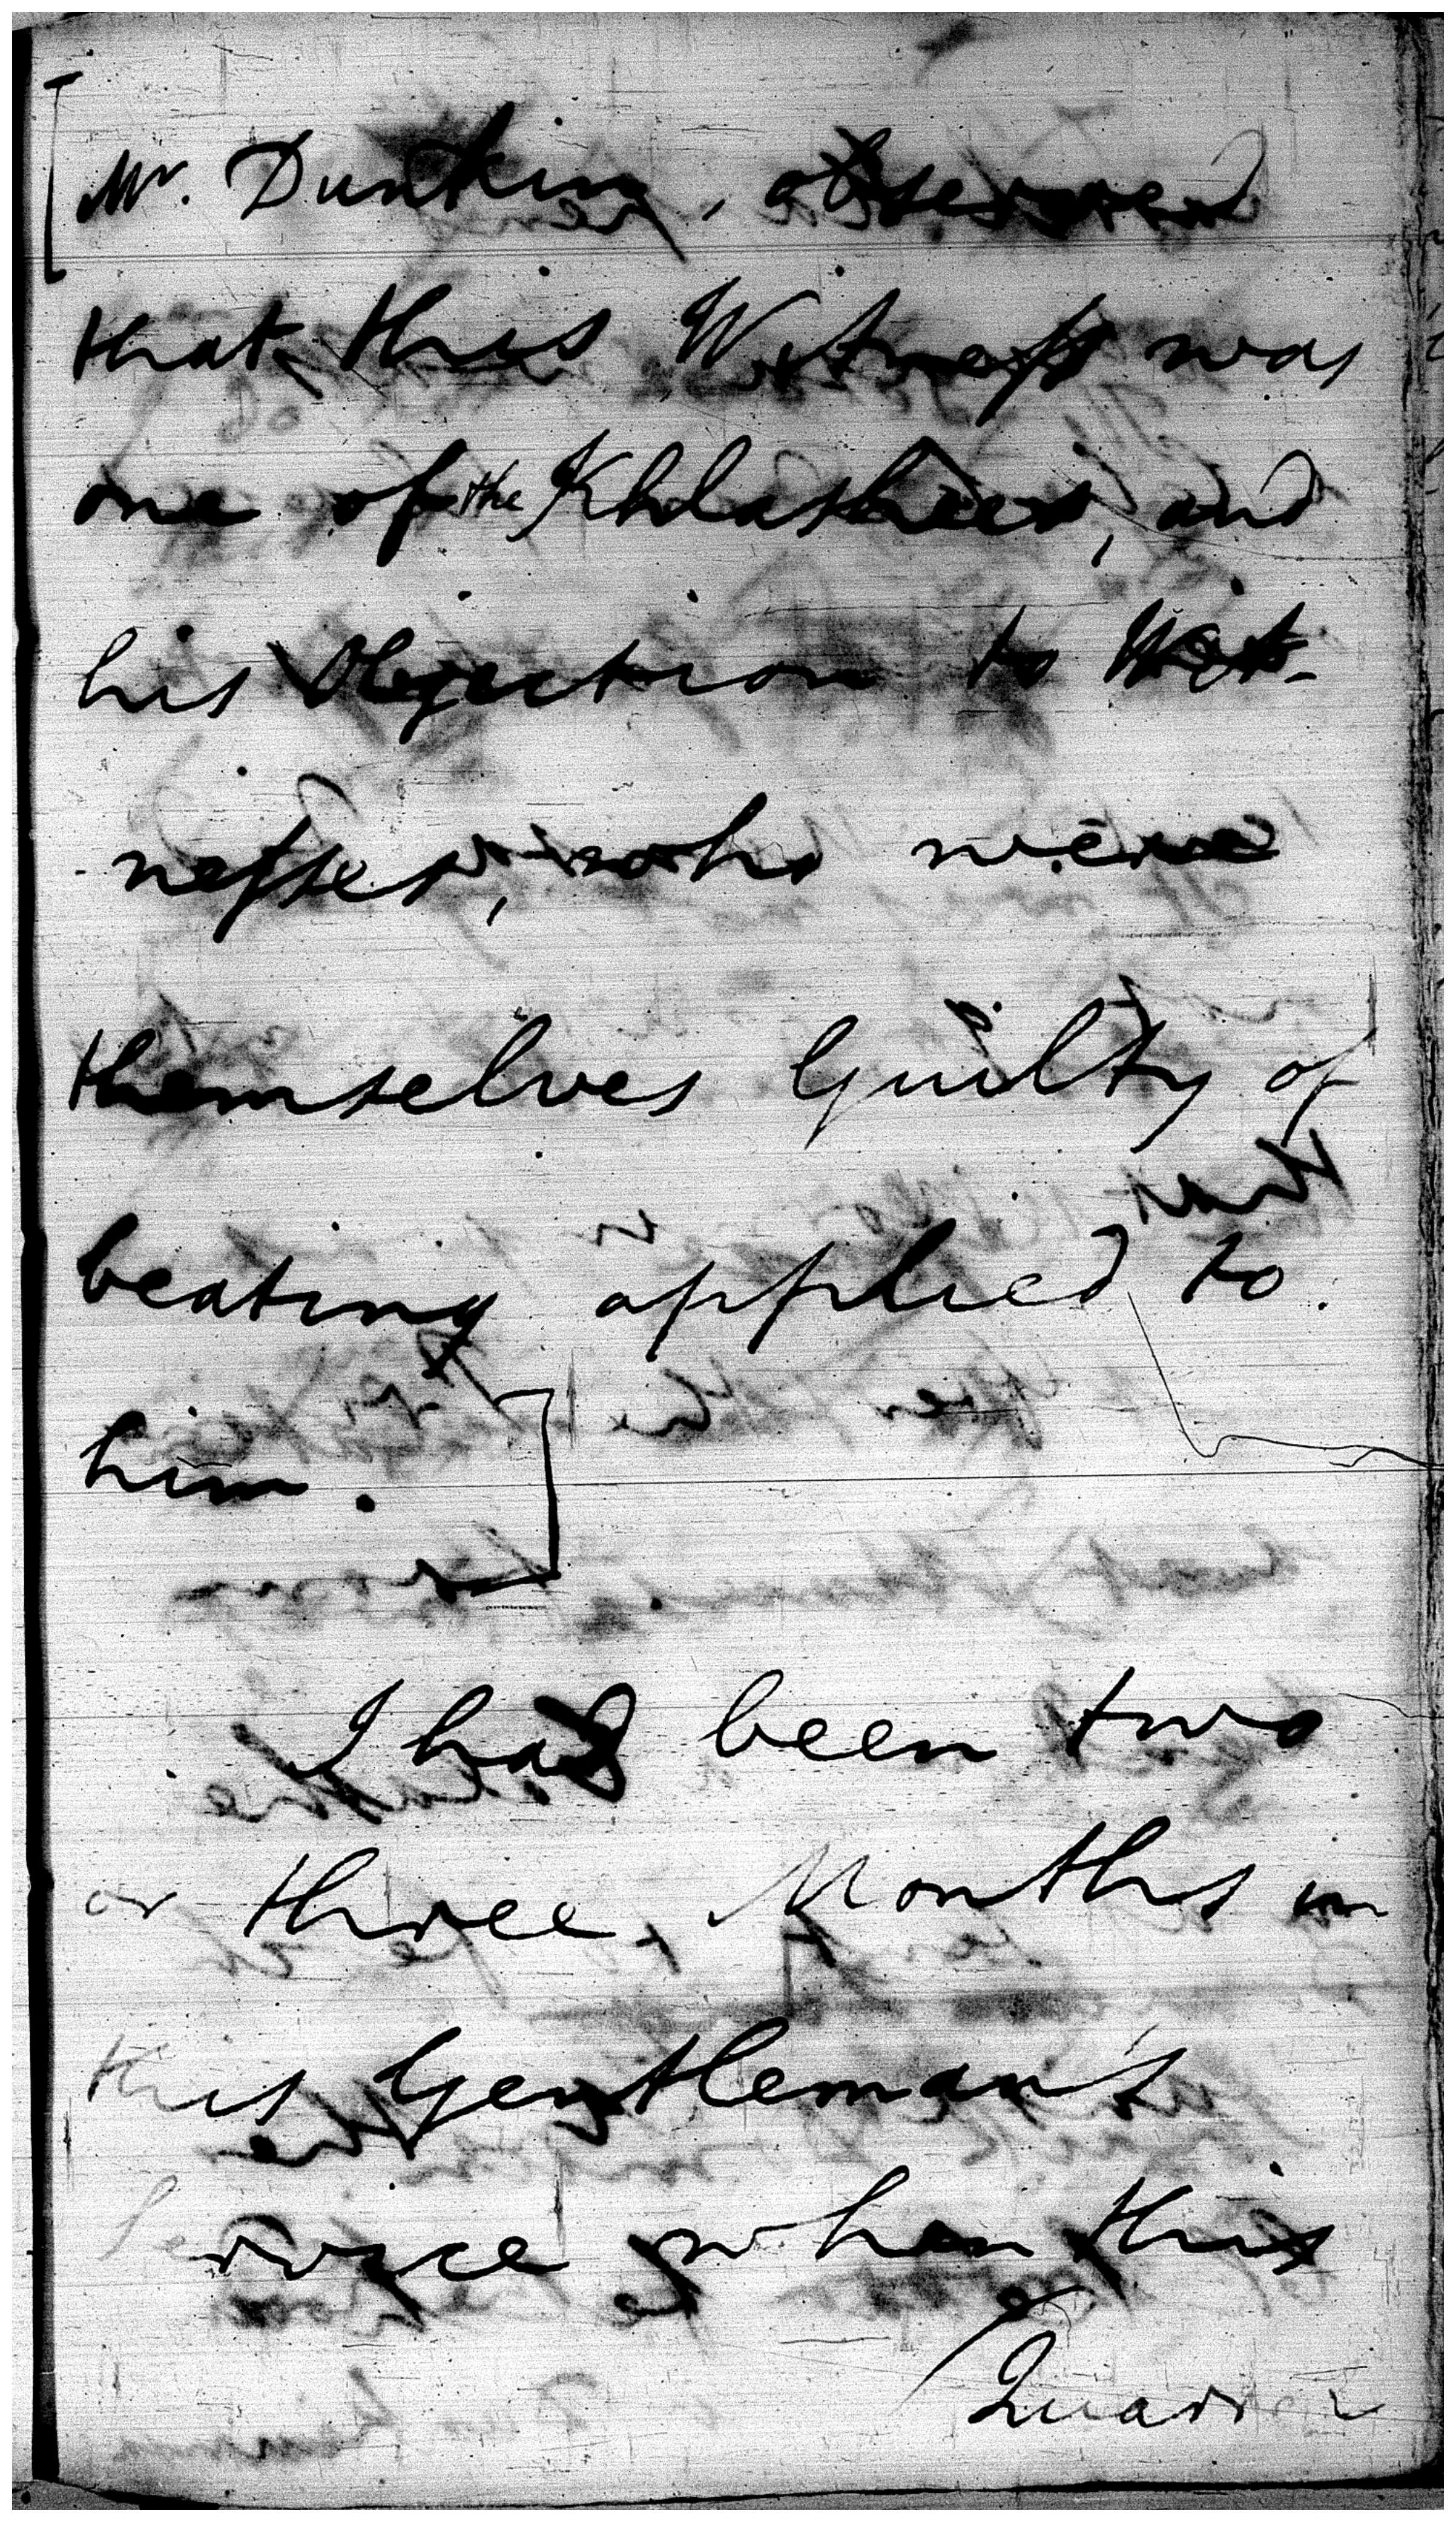 [Mr. Dunkin, observed
that this Witness was
one of the Khlashees, and
his Objection to Wit-
-nesses, who were
themselves Guilty of
beating applied to
him.]
I had been two
or three Months in
this Gentleman's
Service when this
Quarrel